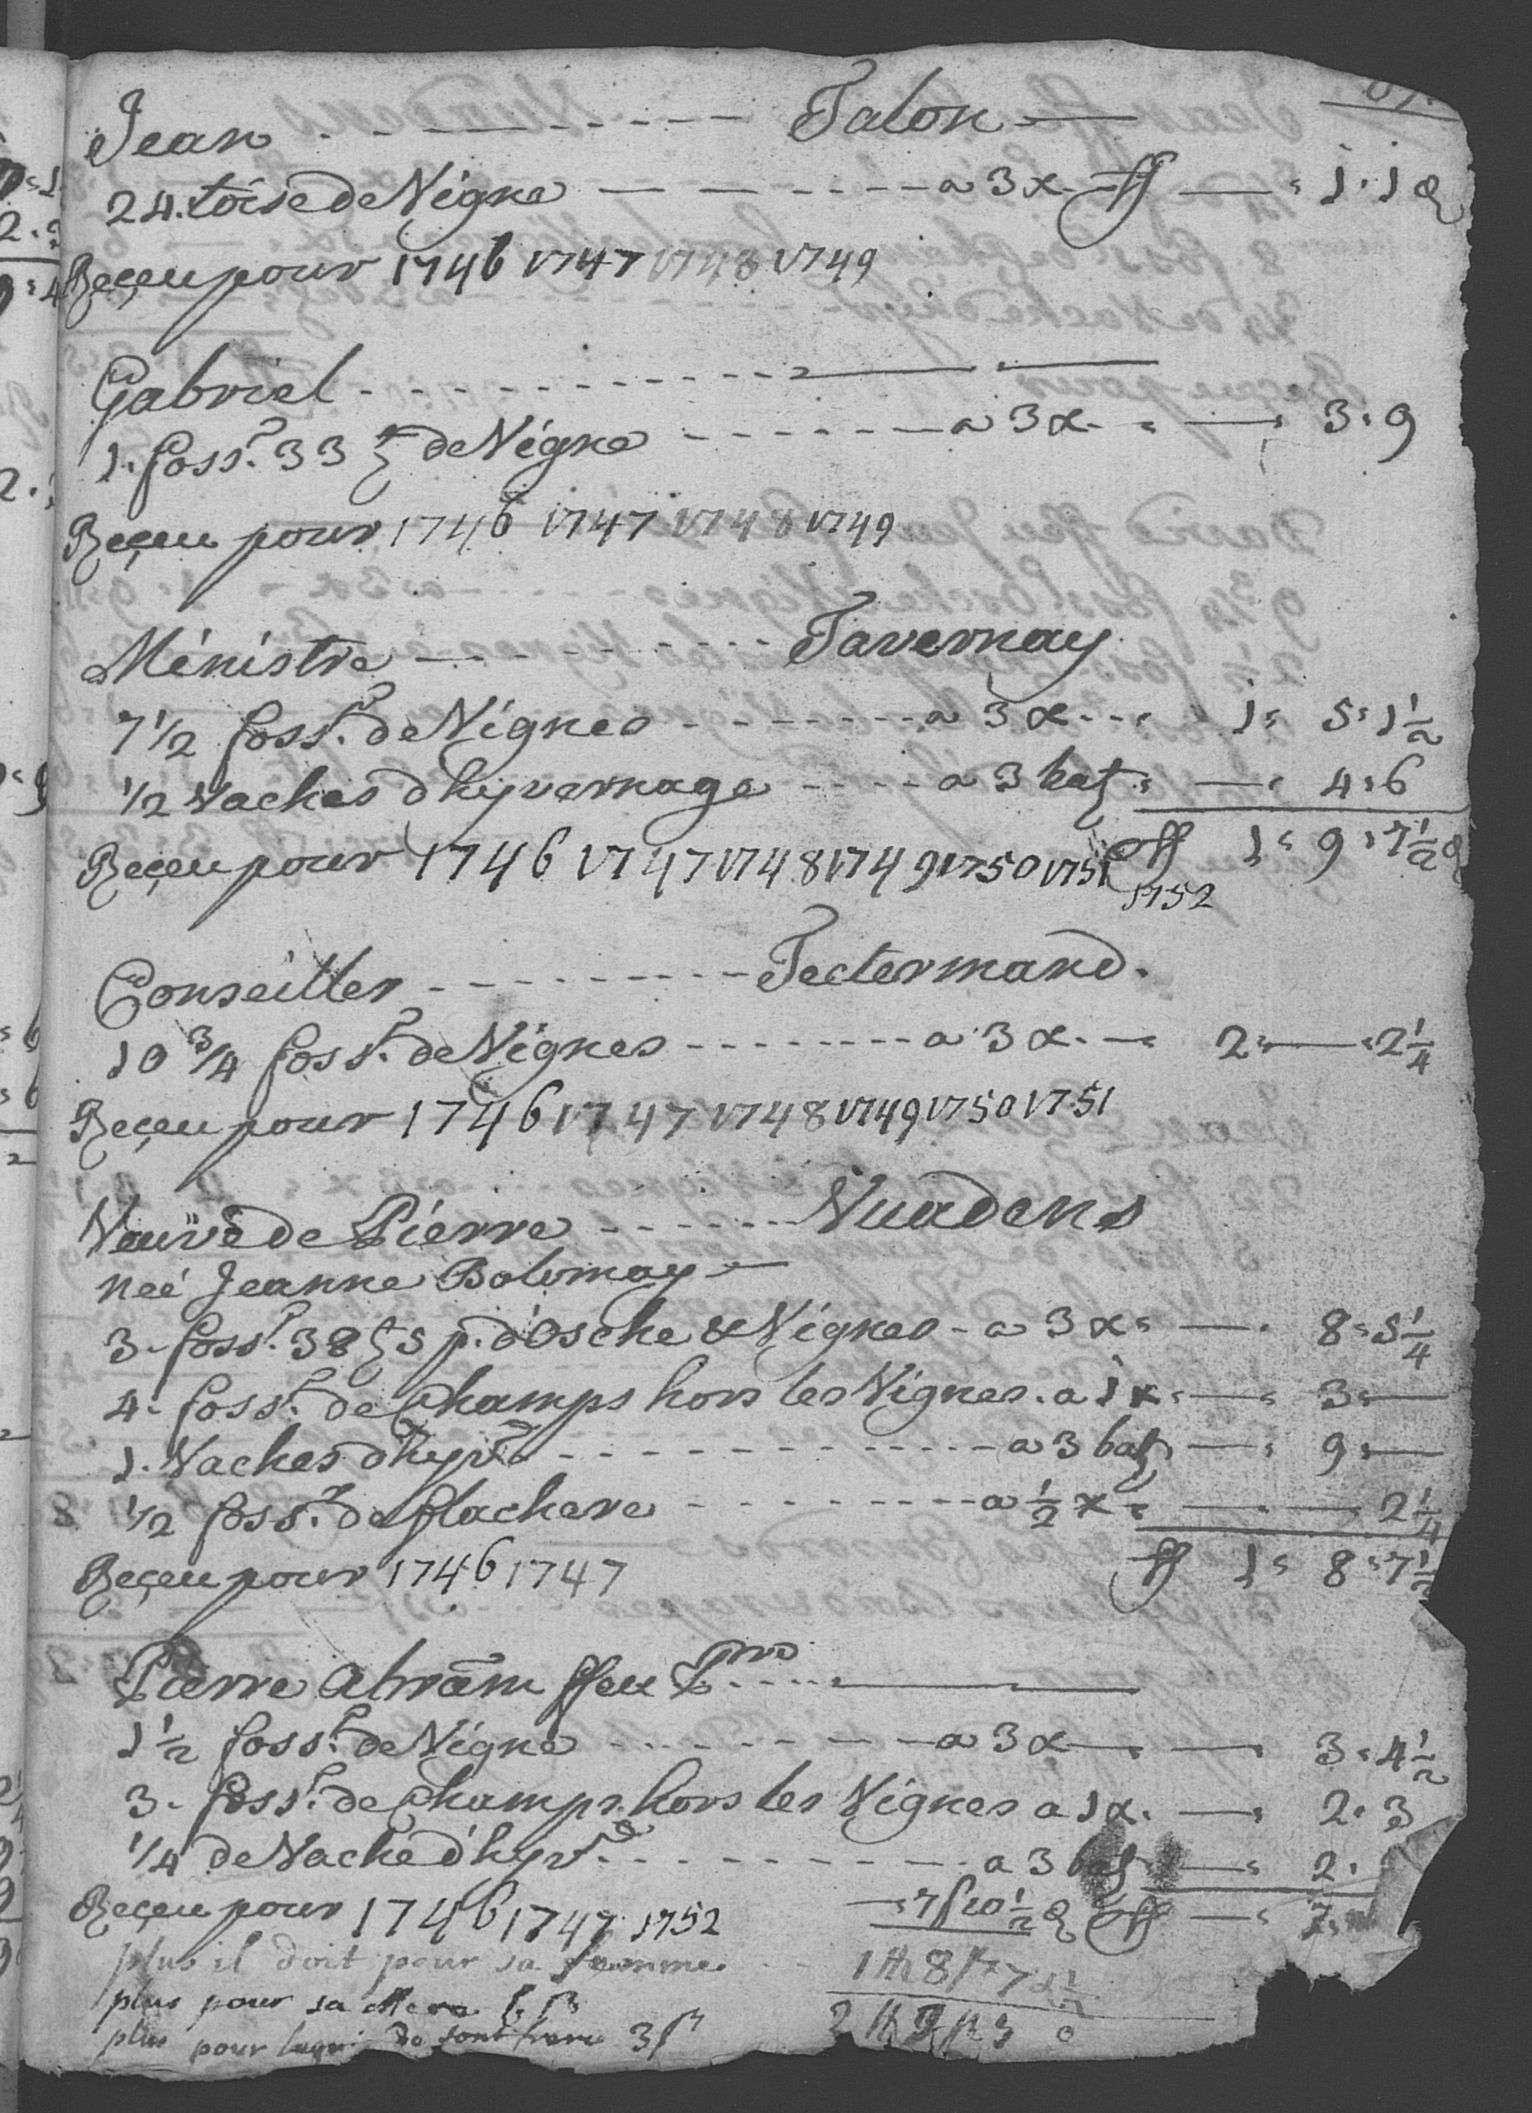 Jean - - - - - - - - - - Talon
24. toise de Vigne - - - - - - - a 3 x. ff — 1 . 1 &
Reçeu pour 1746 1747 1748 1749
Gabriel - - - - - - - - - -
1. foss.r 33 de Vigne - - - - - - - a 3 x. — 3 . 9
Reçeu pour 1746 1747 1748 1749
Ministre - - - - - - - - - Tavernay
7 1/2 foss.r de Vignes - - - - - - - a 3 x. . . 1 . 5 . 1 1/2
1/2 Vaches d'hyvernage - - - - a 3 batz. — 4 . 6
Reçeu pour 1746 1747 1748 1749 1750 1751 ff 1 . 9 . 7 1/2 &
1752
Conseiller - - - - - - - - - Tectermand.
10 3/4 foss.r de Vignes - - - - - - - - a 3 x. — 2 . — . 2 1/4
Reçeu pour 1746 1747 1748 1749 1750 1751
Veuve de Pierre - - - - - - Vuadens
neé Jeanne Bolomay
3. foss.r 38 5 p. d'Osche & Vignes - a 3 x. — . 8 . 5 1/4
4. foss.r de Champs hors les Vignes . a 1 x. — 3 . —
1. Vaches d'hyv.e - - - - - - - - - - - a 3 batz — 9 . —
1/2 foss.r de flachere - - - - - - - - a 1/2 x. — . — 2 1/4
Reçeu pour 1746 1747 ff 1 . 8 . 7 1/2
Pierre Abram ffeu P.rre
1 1/2 foss.r de Vigne - - - - - - - a 3 x — . — 3 . 4 1/2
3. foss.r de Champs hors les Vignes a 1 x. — . 2 . 3
1/4 de Vache d'hyv.e - - - - - - - - - a 3 batz — . 2 .
Reçeu pour 1746 1747 1752 — . 7 f 10 1/2 & ff — . 7 .
plus il doit pour sa femme - - 1 ff 8 7 1/2
plus pour sa Mere
plus pour de sont frere 3 f